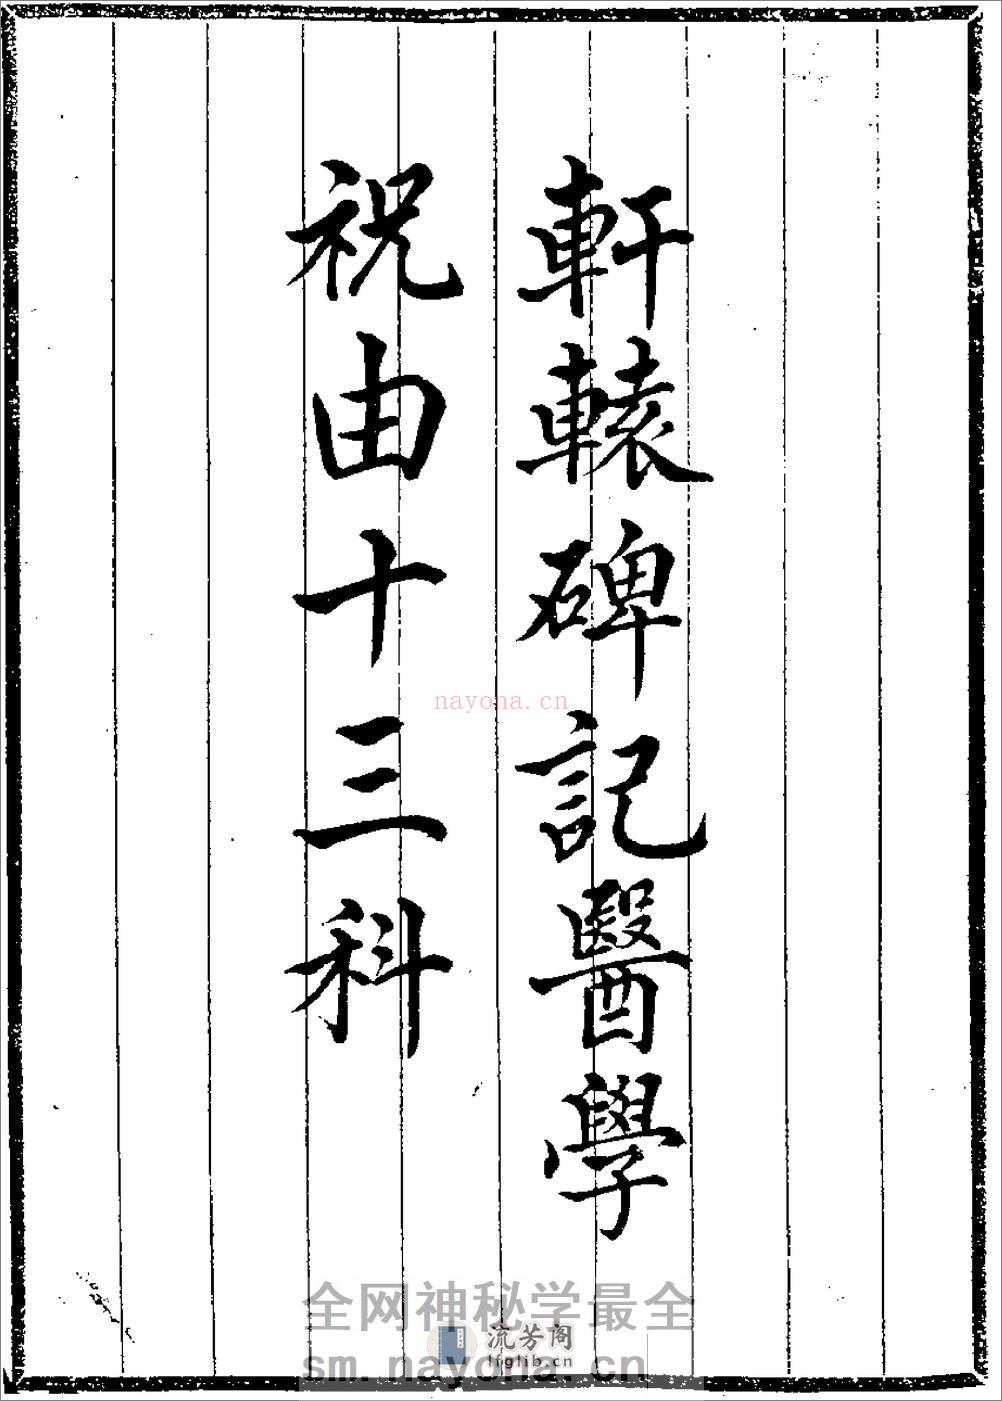 軒轅碑記醫學
祝由十三科
nayona.cn
全网神秘学最全
流芳阁
lfglib.cn
sm.nayona.cn